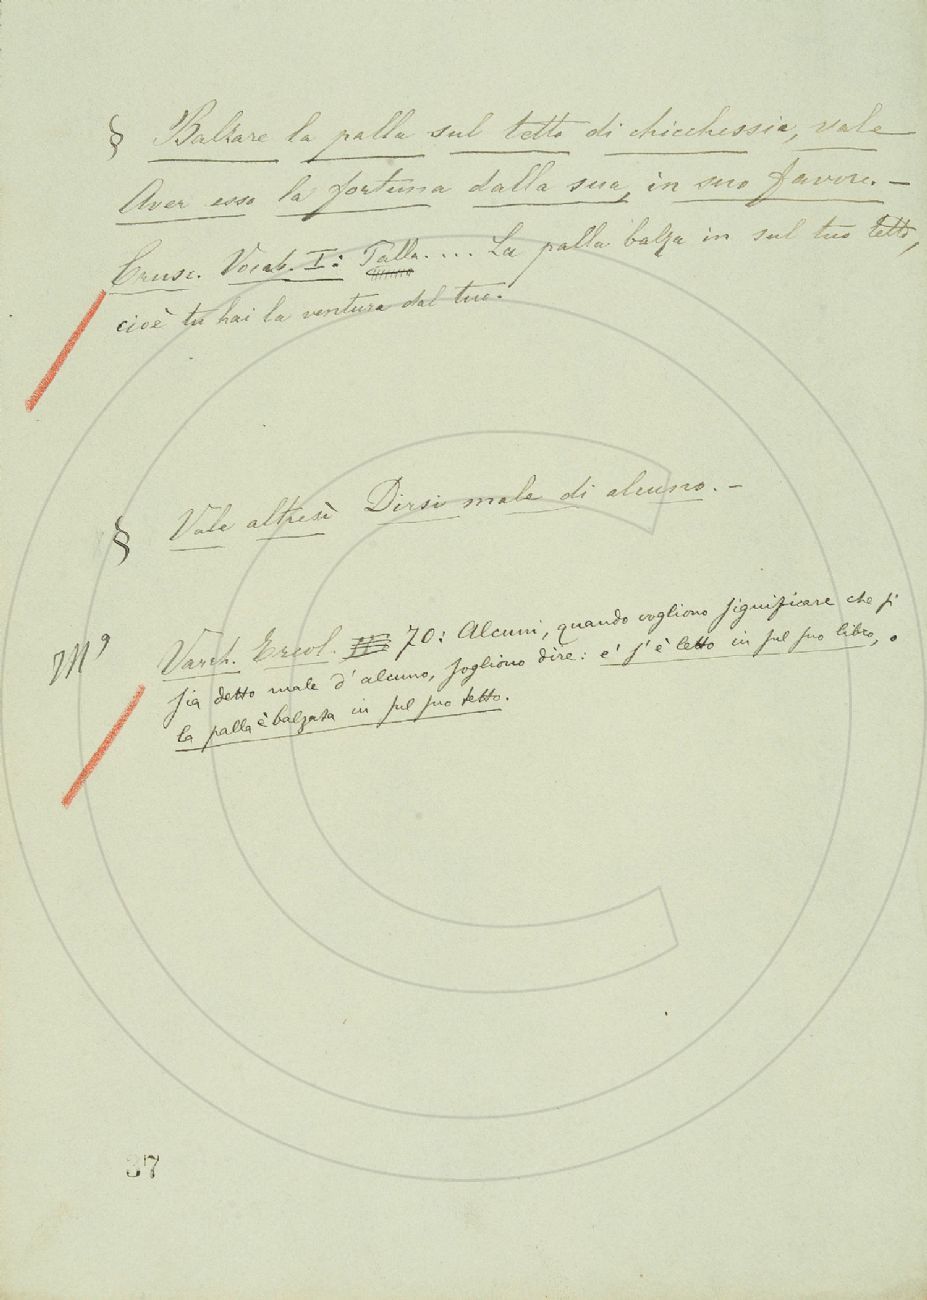 § Balzare la palla sul tetto di chicchessia, vale
Aver esso la fortuna dalla sua, in suo favore. —
Crusc. Vocab. I: Palla.... La palla balza in sul tuo tetto,
cioè tu hai la ventura dal tuo.
§ Vale altresì Dirsi male di alcuno. —
Varch. Ercol. 70: Alcuni, quando vogliono significare che si
sia detto male d'alcuno, sogliono dire: e' s'è letto in sul suo libro, o
la palla è balzata in sul suo tetto.
37